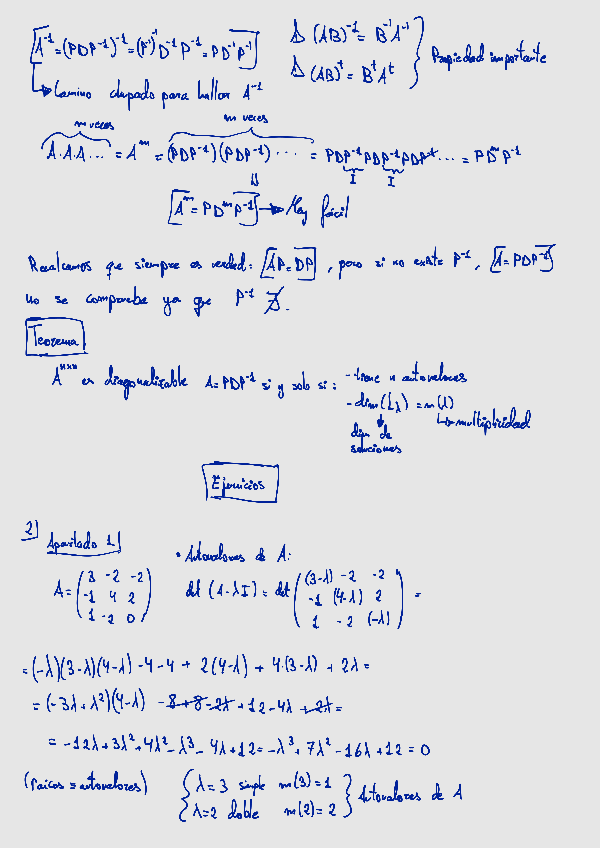 A⁻¹=(PDP⁻¹)⁻¹=(P⁻¹)⁻¹D⁻¹P⁻¹=PD⁻¹P⁻¹
Δ (AB)⁻¹= B⁻¹A⁻¹
Δ (AB)ᵗ= BᵗAᵗ
Propiedad importante
Camino chupado para hallar A⁻¹
m veces
m veces
A·A·A... = Aᵐ = (PDP⁻¹)(PDP⁻¹)···· = PDP⁻¹PDP⁻¹PDP⁻¹··· = PDᵐP⁻¹
I I
⇓
Aᵐ=PDᵐP⁻¹ → Muy fácil
Realcemos que siempre es verdad: AP=DP, pero si no existe P⁻¹, A=PDP⁻¹
no se comprueba ya que P⁻¹ ∄.
Teorema
Aⁿˣⁿ es diagonalizable A=PDP⁻¹ si y solo si: -tiene n autovalores
-dim(Lλ) = m(λ)
↳ multiplicidad
dim de
soluciones
Ejercicios
2)
Apartado 1)
• Autovalores de A:
A= (3 -2 -2
-1 4 2
1 -2 0)
det (A-λI) = det ((3-λ) -2 -2
-1 (4-λ) 2
1 -2 (-λ)) =
=(-λ)(3-λ)(4-λ) -4-4 + 2(4-λ) + 4·(3-λ) + 2λ=
= (-3λ+λ²)(4-λ) -8+8-2λ+12-4λ+2λ=
= -12λ+3λ²+4λ²-λ³-4λ+12=-λ³+7λ²-16λ+12=0
(raices = autovalores)
λ=3 simple m(3)=1
λ=2 doble m(2)=2
Autovalores de A